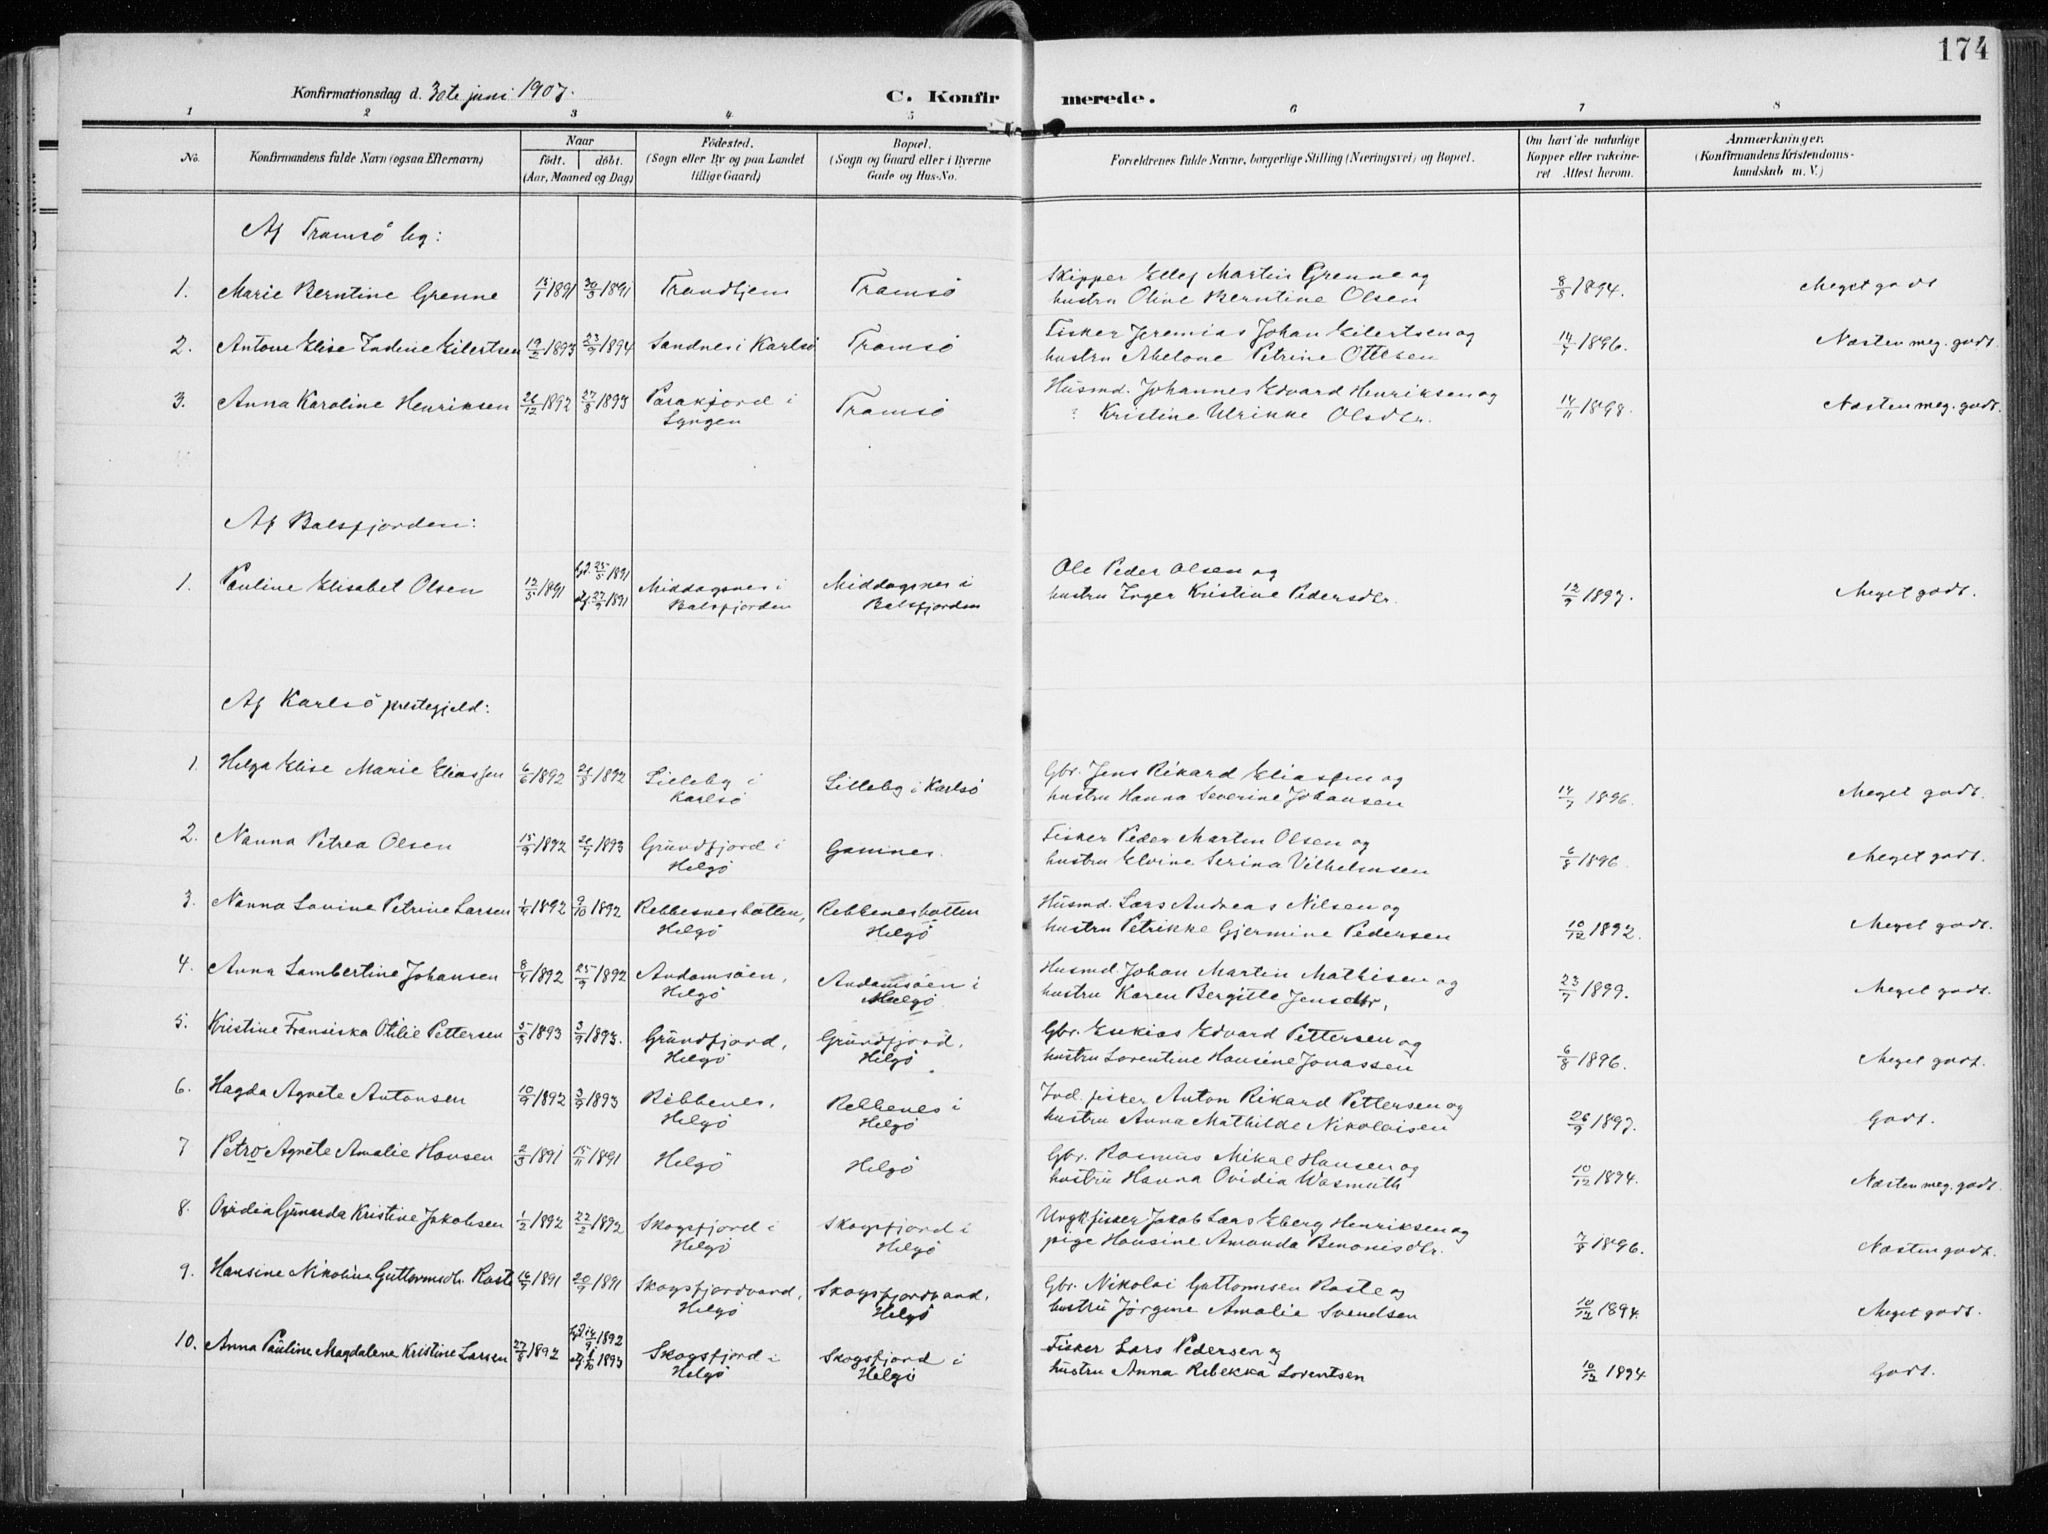 174
Konfirmationsdag d. 30te juni 1907.
C. Konfirmerede.
1 2 3 4 5 6 7 8
No. Konfirmandens fulde Navn (ogsaa Efternavn) Naar födt. döbt. (Aar, Maaned og Dag) Födested. (Sogn eller By og paa Landet tillige Gaard) Bopæl. (Sogn og Gaard eller i Byerne Gade og Hus-No. Forældrenes fulde Navne, borgerlige Stilling (Næringsvei) og Bopæl. Om havt de naturlige Kopper eller vakcineret Attest herom. Anmærkninger. (Konfirmandens Kristendomskundskab m. V.)
Af Tromsö by:
1. Marie Berntine Grenne 15/1 1891 30/3 1891 Trondhjem Tromsö Skipper Ellef Martin Grenne og 8/8 1894. Meget godt
hustru Oline Berntine Olsen
2. Antone Elise Indine Eilertsen 19/2 1893 23/9 1894 Sandnes i Karlsö Tromsö Fisker Jeremias Johan Eilertsen og 14/7 1896. Næsten meg. godt.
hustru Abelone Petrine Ottesen
3. Anna Karoline Henriksen 26/12 1892 27/8 1893 Porakfjord i Tromsö Husmd. Johannes Edvard Henriksen og 14/11 1898. Næsten meg. godt.
Lyngen ? Kristine Ulrikke Olsdtr.
Af Balsfjorden:
1. Pauline Elisabet Olsen 12/5 1891 hjd. 25/5 1891 Middagsnes i Middagsnes i Ole Peder Olsen og 12/9 1897. Meget godt.
27/9 1891 Balsfjorden Balsfjorden hustru Inger Kristine Pedersdtr.
Af Karlsö prestegjeld:
1. Helga Elise Marie Eliassen 6/6 1892 21/8 1892 Lilleby i Lilleby i Karlsö Gbr. Jens Rikard Eliassen og 14/7 1896. Meget godt.
Karlsö hustru Hanna Severine Johansen
2. Nanna Petrea Olsen 15/9 1892 26/7 1893 Grundfjord i Gamnes. Fisker Peder Martin Olsen og 6/8 1896. Meget godt.
Helgö hustru Elvine Serina Vilhelmsen
3. Nanna Lovine Petrine Larsen 1/4 1892 9/10 1892 Rebbesnesbotten, Rebbenesbotten Husmd. Lars Andreas Nilsen og 10/12 1892. Meget godt.
Helgö Helgö hustru Petrikke Gjermine Pedersen
4. Anna Lambertine Johansen 8/4 1892 25/9 1892 Andamsöen, Andamsöen i Husmd. Johan Martin Mathisen og 23/7 1899. Meget godt.
Helgö Helgö hustru Karen Bergitte Jensdtr,
5. Kristine Fransiska Otilie Pettersen 5/3 1893 3/9 1893. Grundfjord, Grundfjord, Gbr. Esekias Edvard Pettersen og 6/8 1896. Meget godt.
Helgö Helgö hustru Lorentine Hansine Jonassen
6. Hagda Agnete Antonsen 10/9 1892 3/9 1893 Ribbenes, Rebbenes i Ind. fisker Anton Rikard Pettersen og 26/9 1897. Godt.
Helgö Helgö hustru Anna Mathilde Nikolaisen
7 Petro Agnete Amalie Hansen 2/3 1891 15/11 1891 Helgö Helgö Gbr. Rasmus Mikal Hansen og 10/12 1894. Næsten meg. godt.
hustru Hanna Ovidia Wasmuth
8. Ovidia Gunarda Kristine Jakobsen 1/2 1892 22/2 1892 Skogsfjord i Skogsfjord i Ungk. fisker Jakob Lars Eberg Henriksen og 7/8 1896. Næsten godt.
Helgö Helgö pige Hansine Amanda Benonisdtr.
9. Hansine Nikoline Guttormsdtr. Roste 16/7 1891 20/9 1891 Skogsfjordvand, Skogsfjordvand, Gbr. Nikolai Guttormsen Roste og 10/12 1894. Meget godt.
Helgö Helgö hustru Jörgine Amalie Svendsen
10. Anna Pauline Magdalene Kristine Larsen 27/8 1892 hjd. 14/9 1892 Skogsfjord i Skogsfjord i Fisker Lars Pedersen og 10/12 1894 Godt.
1/10 1893 Helgö Helgö hustru Anna Rebekka Lorentsen